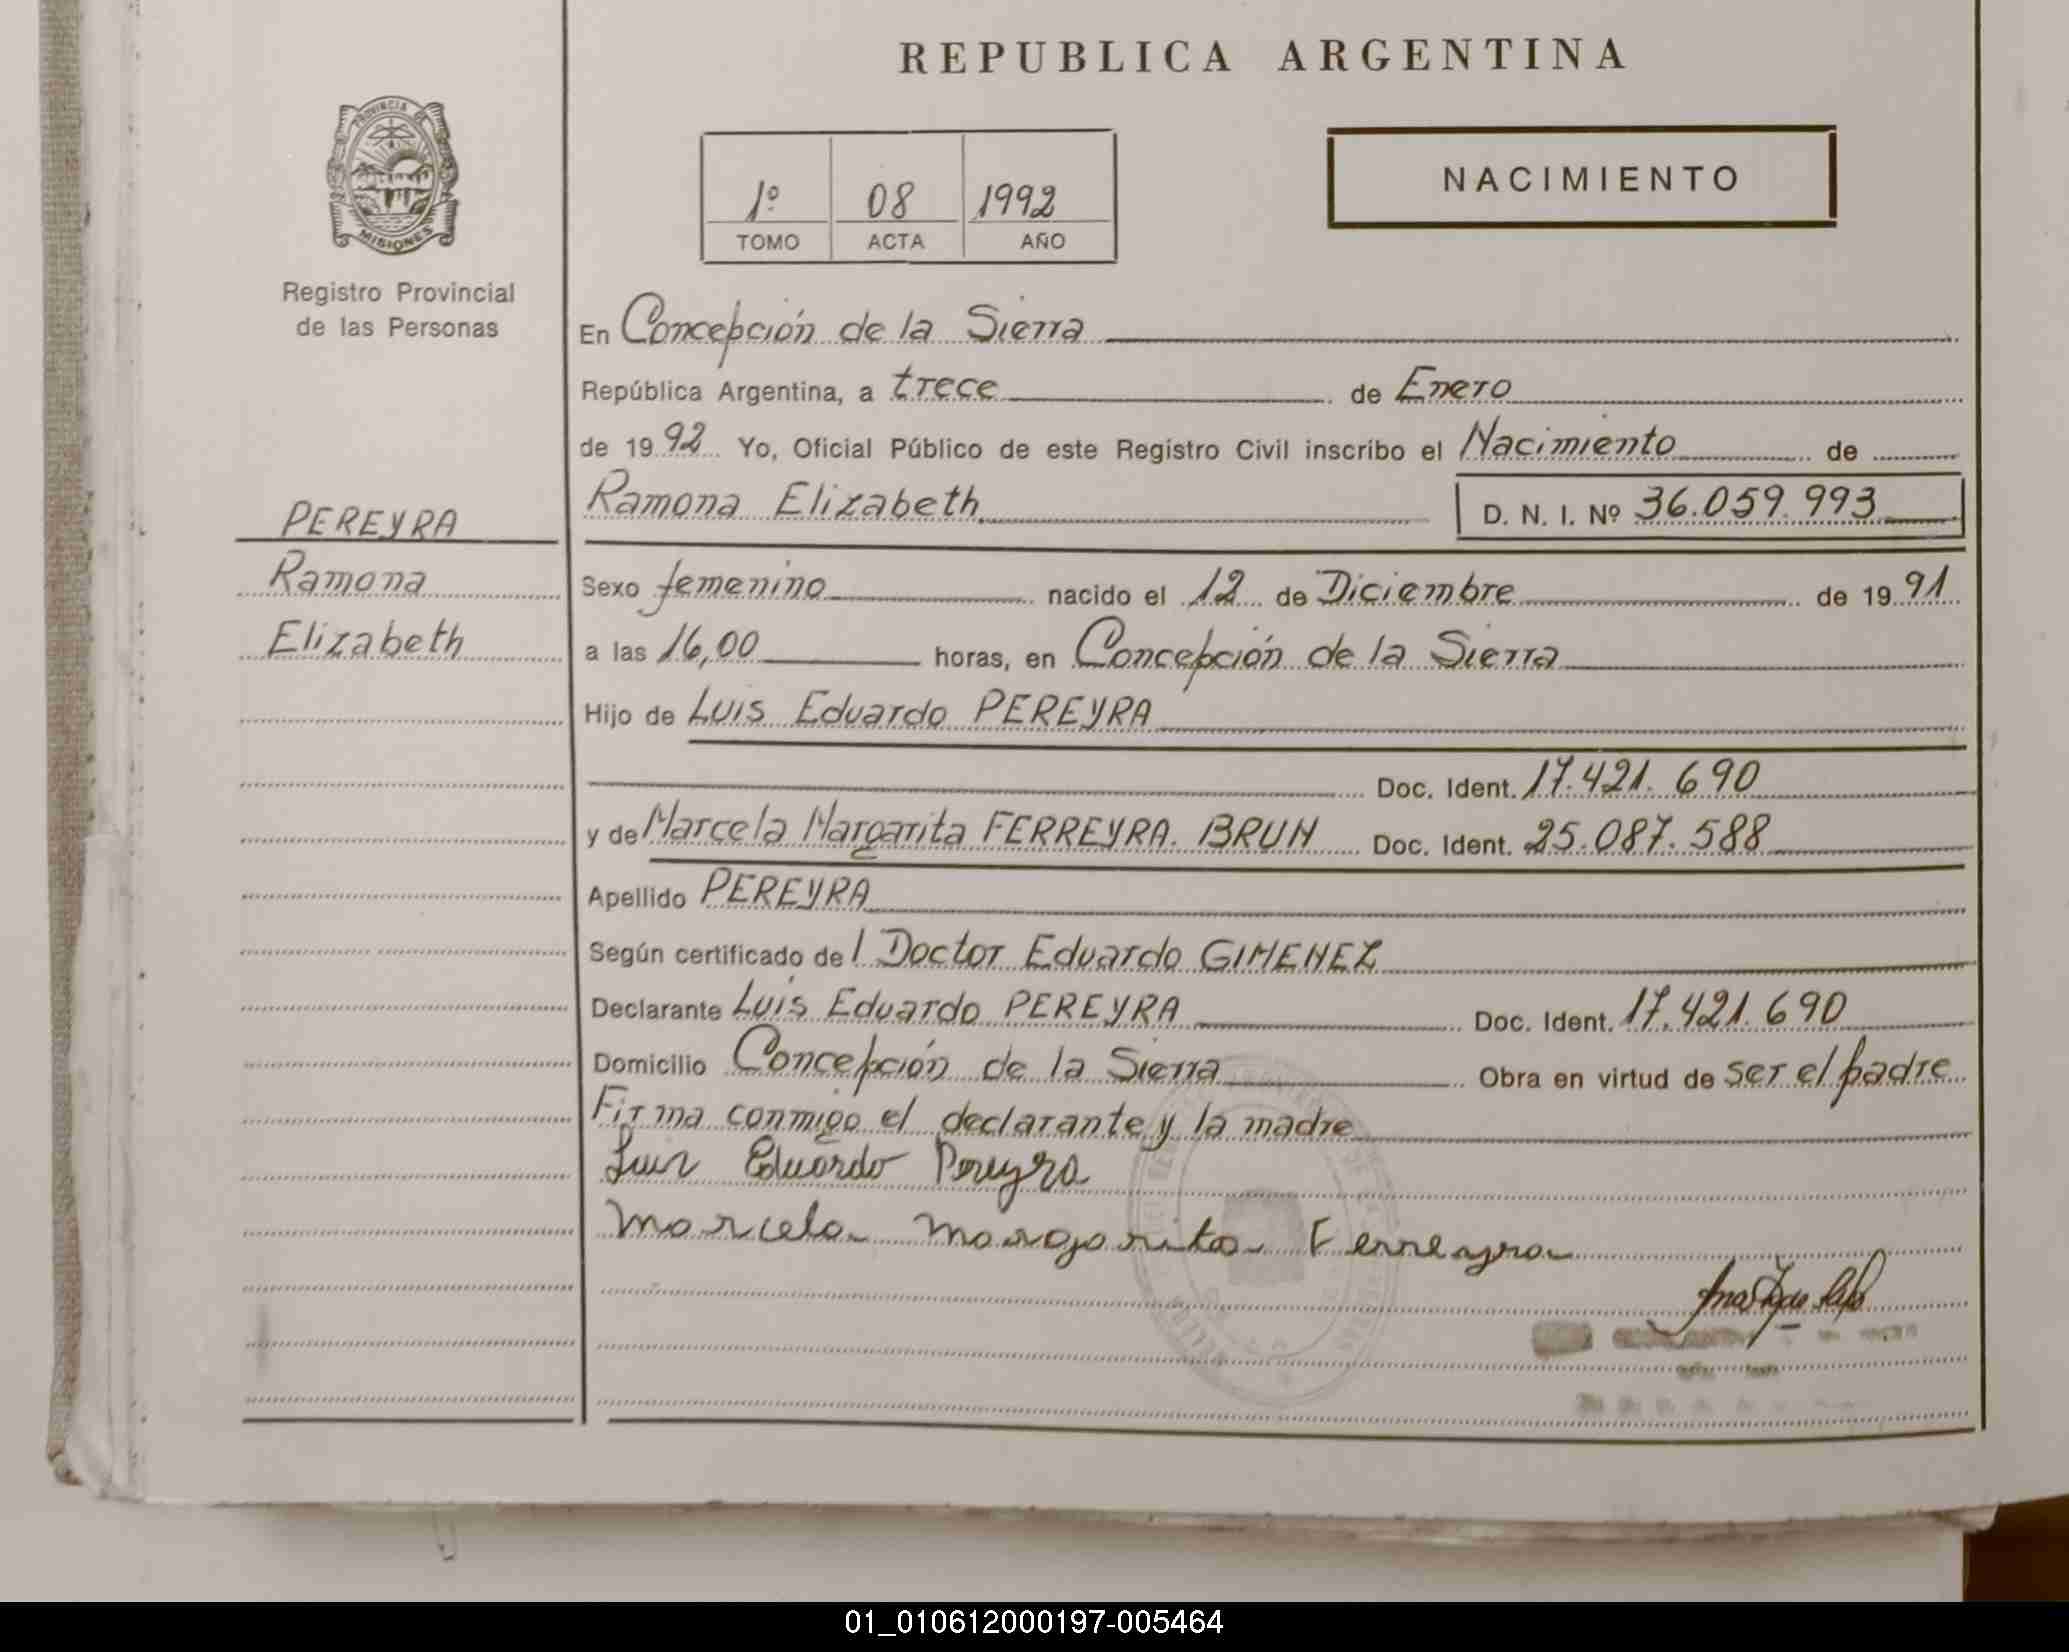 REPUBLICA ARGENTINA
PROVINCIA DE
MISIONES
Registro Provincial
de las Personas
1º 08 1992
TOMO ACTA AÑO
NACIMIENTO
En Concepción de la Sierra
República Argentina, a trece de Enero
de 1992 Yo, Oficial Público de este Registro Civil inscribo el Nacimiento de
PEREYRA
Ramona
Elizabeth
Ramona Elizabeth D. N. I. Nº 36.059.993
Sexo femenino nacido el 12 de Diciembre de 1991
a las 16,00 horas, en Concepción de la Sierra
Hijo de Luis Eduardo PEREYRA
Doc. Ident. 17.421.690
y de Marcela Margarita FERREYRA BRUN Doc. Ident. 25.087.588
Apellido PEREYRA
Según certificado del Doctor Eduardo GIMENEZ
Declarante Luis Eduardo PEREYRA Doc. Ident. 17.421.690
Domicilio Concepción de la Sierra Obra en virtud de ser el padre
Firma conmigo el declarante y la madre
Luis Eduardo Pereyra
Marcela Margarita Ferreyra
01_010612000197-005464